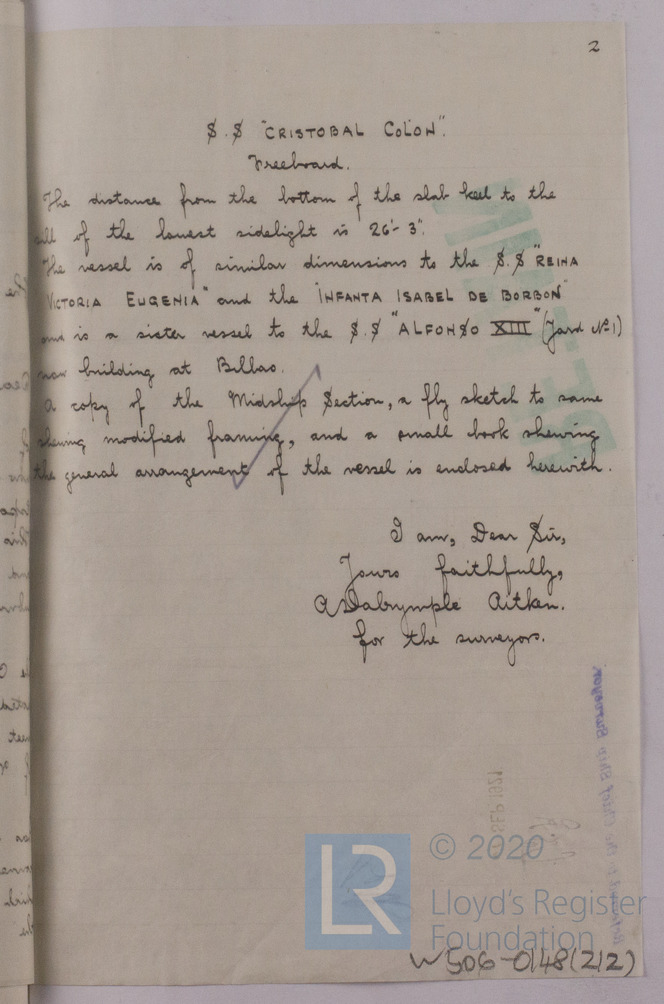 2
S.S "CRISTOBAL COLON".
Freeboard.
The distance from the bottom of the slab keel to the
sill of the lowest sidelight is 26'-3".
The vessel is of similar dimensions to the S.S "REINA
VICTORIA EUGENIA" and the "INFANTA ISABEL DE BORBON"
and is a sister vessel to the S.S "ALFONSO XIII" (Yard No 1)
now building at Bilbao.
A copy of the Midship Section, a fly sketch to same
shewing modified framing, and a small book shewing
the general arrangement of the vessel is enclosed herewith.
I am, Dear Sir,
Yours faithfully,
A Dalrymple Aitken.
for the surveyors.
SEP 1921
the Chief Ship Surveyor
© 2020
LR
Lloyd's Register
Foundation
W506-0148(2/2)